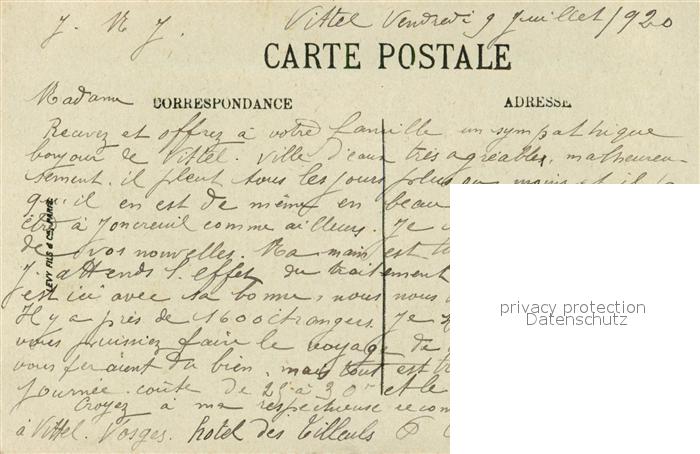 J. M J. Vittel Vendredi 9 Juillet 1920
CARTE POSTALE
CORRESPONDANCE
ADRESSE
Madame
Recevez et offrez à votre famille un sympathique
bonjour de Vittel. ville d'eaux très agréable, malheureu-
sement. il pleut tous les jours plus ou moins et il
qu'il en est de même en beau
être à Joncreuil comme ailleurs. Je
de vos nouvelles. Ma main est
J'attends l'effet du traitement
est ici avec sa bonne, nous nous
Il y a près de 1600 étrangers. Je
vous puissiez faire le voyage de
vous feraient du bien, mais tout est
journée coûte de 25 à 30 et le
Croyez à ma respectueuse
à Vittel. Vosges. hotel des Tilleuls
LEVY FILS & Cie, PARIS
privacy protection
Datenschutz